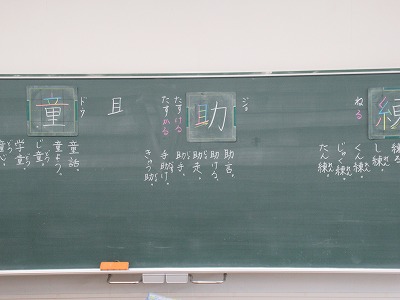 練
ねる
練る。
し練。
くん練。
じゅく練。
たん練。
助
ジョ
たすける
たすかる
助言。
助ける。
助走。
助手。
手助け。
きゅう助。
且
童
ドウ
童話。
童よう。
じ童。
学童。